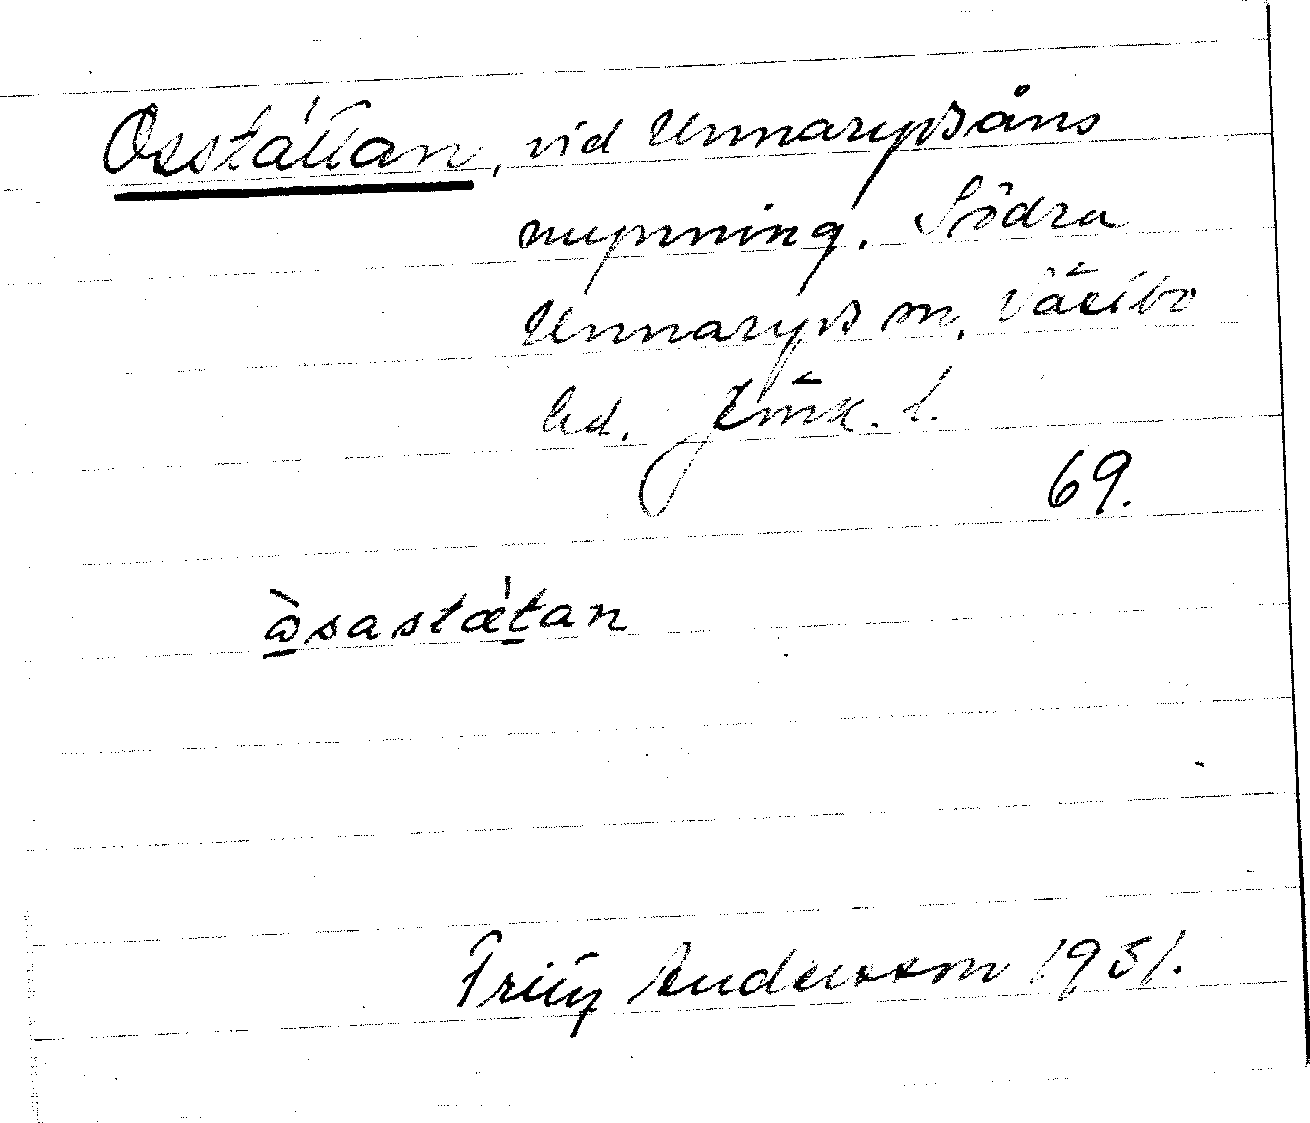 Osstättan, vid Unnarydsåns
mynning. Södra
Unnaryds sn, Västbo
hd. Jönk. l.
69.
ὰsastæ̍tan
Fritz Andersson